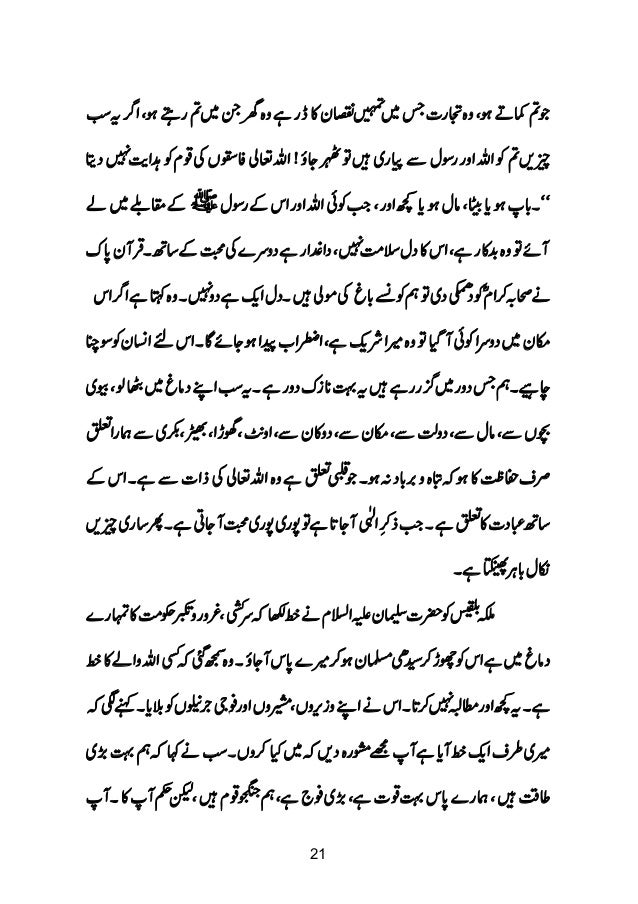 جو تم کماتے ہو، وہ تجارت جس میں تمہیں نقصان کا ڈر ہے وہ گھر جن میں تم رہتے ہو، اگر یہ سب
چیزیں تم کو اللہ اور رسول سے پیاری ہیں تو ٹھہر جاؤ! اللہ تعالی فاسقوں کی قوم کو ہدایت نہیں دیتا
‘‘۔ باپ ہو یا بیٹا، مال ہو یا کچھ اور ، جب کوئی اللہ اور اس کے رسول ﷺ کے مقابلے میں لے
آئے تو وہ بدکار ہے، اس کا دل سلامت نہیں، داغدار ہے دوسرے کی محبت کے ساتھ۔ قرآن پاک
نے صحابہ کرامؓ کو دھمکی دی تو ہم کونسے باغ کی مولی ہیں ۔ دل ایک ہے دو نہیں۔ وہ کہتا ہے اگر اس
مکان میں دوسرا کوئی آ گیا تو وہ میرا شریک ہے، اضطراب پیدا ہو جائے گا۔ اس لئے انسان کو سوچنا
چاہیے۔ ہم جس دور میں گزر رہے ہیں یہ بہت نازک دور ہے ۔ یہ سب اپنے دماغ میں بٹھا لو ، بیوی
بچوں سے، مال سے، دولت سے، مکان سے، دوکان سے، اونٹ ، گھوڑا، بھیڑ، بکری سے ہمارا تعلق
صرف حفاظت کا ہو کہ تباہ و برباد نہ ہو۔ جو قلبی تعلق ہے وہ اللہ تعالی کی ذات سے ہے۔ اس کے
ساتھ عبادت کا تعلق ہے ۔ جب ذکرِ الٰہی آ جاتا ہے تو پوری پوری محبت آ جاتی ہے۔ پھر ساری چیزیں
نکال باہر پھینکتا ہے۔
ملکہ بلقیس کو حضرت سلیمان علیہ السلام نے خط لکھا کہ سرکشی ، غرور و تکبر حکومت کا تمہارے
دماغ میں ہے اس کو چھوڑ کر سیدھی مسلمان ہو کر میرے پاس آ جاؤ ۔ وہ سمجھ گئی کہ کسی اللہ والے کا خط
ہے۔ یہ کچھ اور مطالبہ نہیں کرتا۔ اس نے اپنے وزیروں، مشیروں اور فوجی جرنیلوں کو بلایا۔ کہنے لگی کہ
میری طرف ایک خط آیا ہے آپ مجھے مشورہ دیں کہ میں کیا کروں۔ سب نے کہا کہ ہم بہت بڑی
طاقت ہیں ، ہمارے پاس بہت قوت ہے، بڑی فوج ہے، ہم جنگجو قوم ہیں ، لیکن حکم آپ کا ۔ آپ
21